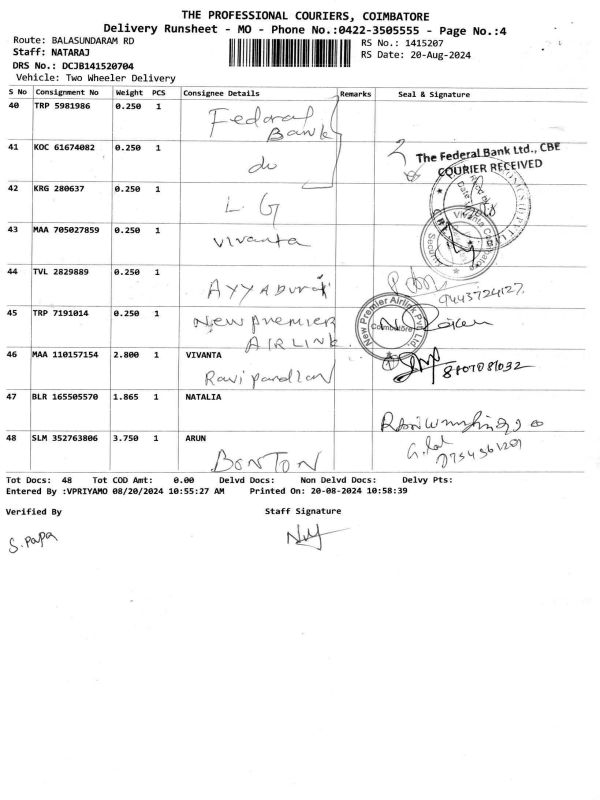 THE PROFESSIONAL COURIERS, COIMBATORE
Delivery Runsheet - MO - Phone No.:0422-3505555 - Page No.:4
Route: BALASUNDARAM RD
RS No.: 1415207
Staff: NATARAJ
RS Date: 20-Aug-2024
DRS No.: DCJB141520704
Vehicle: Two Wheeler Delivery
S No Consignment No Weight PCS Consignee Details Remarks Seal & Signature
40 TRP 5981986 0.250 1 Federal Bank
41 KOC 61674082 0.250 1 do
The Federal Bank Ltd., CBE
COURIER RECEIVED
42 KRG 280637 0.250 1 L G
43 MAA 705027859 0.250 1 Vivanta
Vivanta Coimbatore
44 TVL 2829889 0.250 1 AYYADURAI
9443724127
45 TRP 7191014 0.250 1 New PREMIER AIRLINK
New Premier Airlink Pvt. Ltd.
Coimbatore
46 MAA 110157154 2.800 1 VIVANTA
Ravi pandian
47 BLR 165505570 1.865 1 NATALIA
48 SLM 352763806 3.750 1 ARUN
BONTON
Tot Docs: 48 Tot COD Amt: 0.00 Delvd Docs: Non Delvd Docs: Delvy Pts:
Entered By :VPRIYAMO 08/20/2024 10:55:27 AM Printed On: 20-08-2024 10:58:39
Verified By Staff Signature
S. Papa